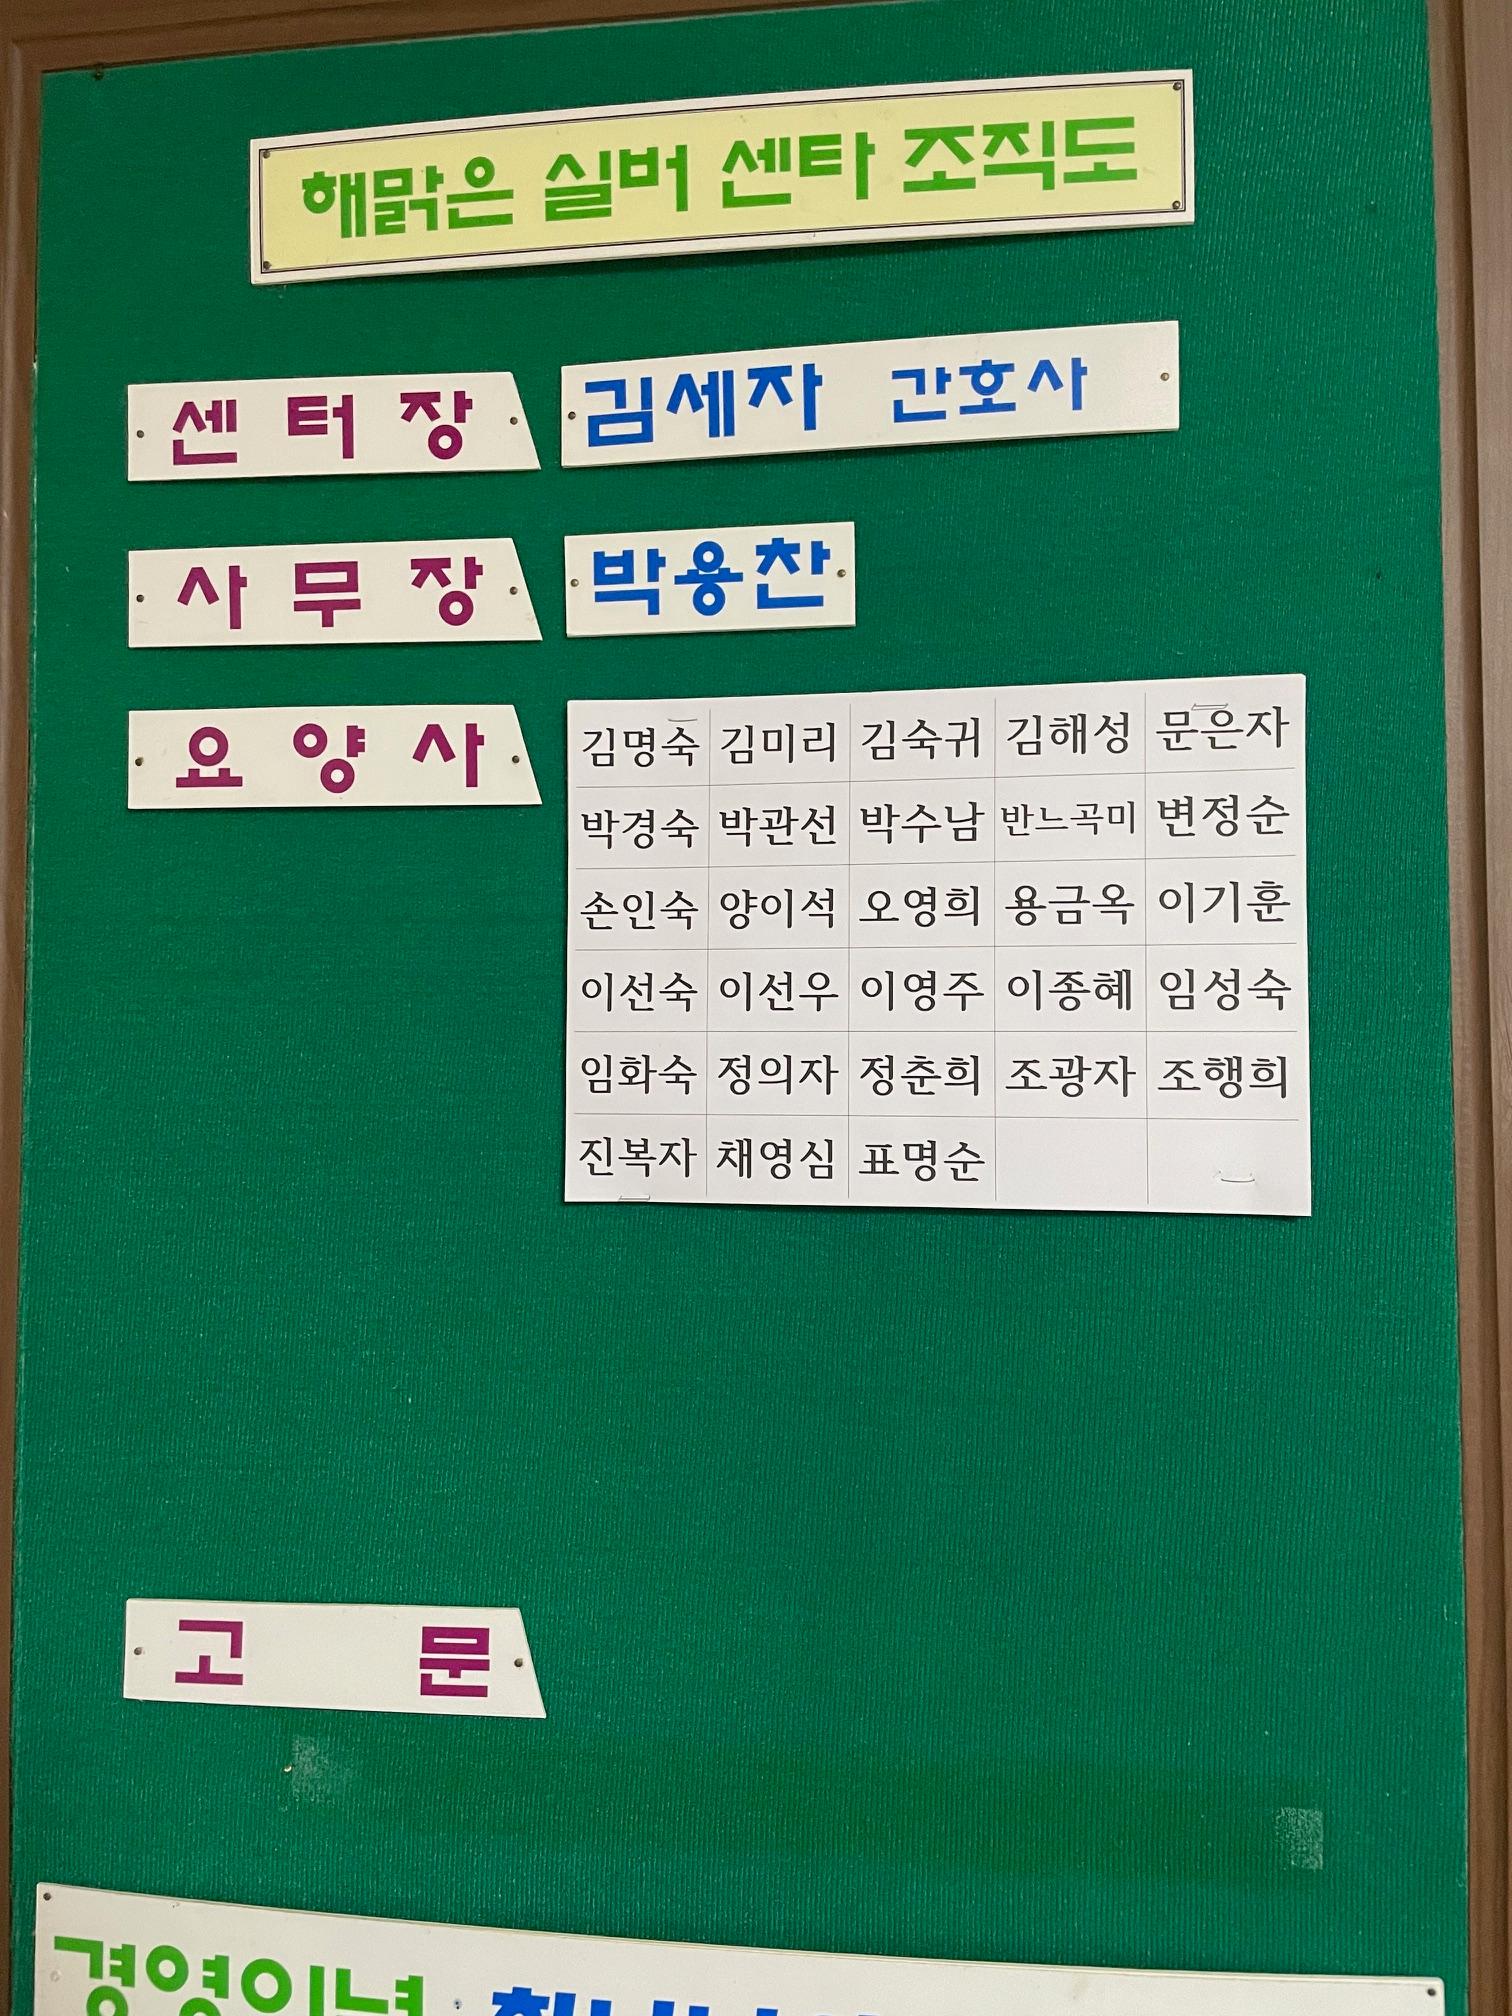 해맑은 실버 센타 조직도
센터장 김세자 간호사
사무장 박용찬
요양사 김명숙 김미리 김숙귀 김해성 문은자
박경숙 박관선 박수남 반느곡미 변정순
손인숙 양이석 오영희 용금옥 이기훈
이선숙 이선우 이영주 이종혜 임성숙
임화숙 정의자 정춘희 조광자 조행희
진복자 채영심 표명순
고문
경영이념